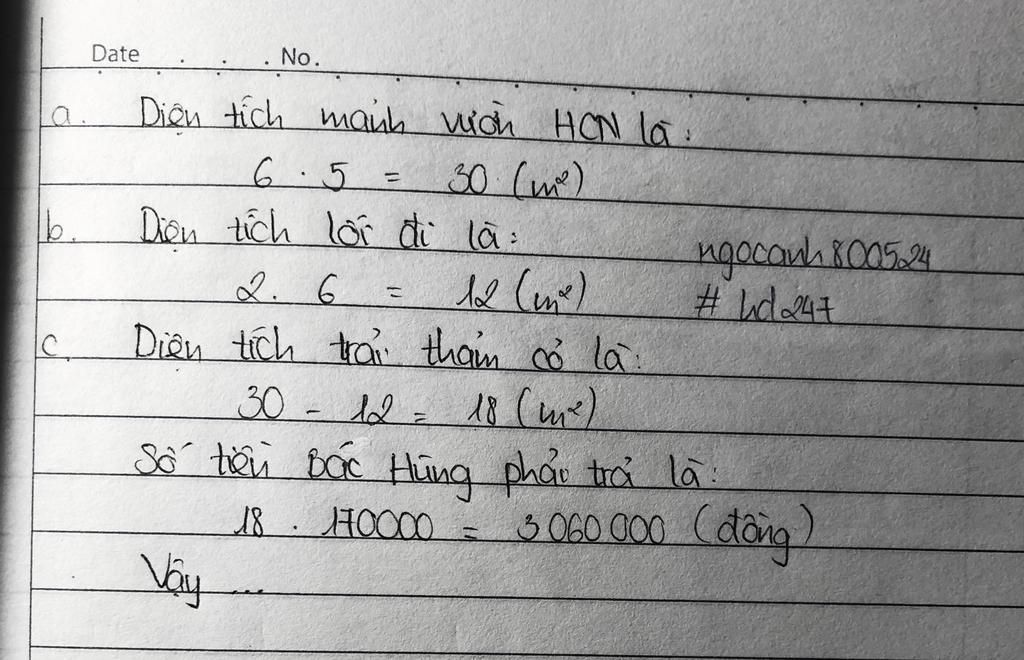 Date . . . No.
a. Diện tích mảnh vườn HCN là:
6 . 5 = 30 (m²)
b. Diện tích lối đi là:
2 . 6 = 12 (m²)
ngocanh800524
# hd247
c. Diện tích trải thảm cỏ là:
30 - 12 = 18 (m²)
Số tiền Bác Hùng phải trả là:
18 . 170000 = 3060000 (đồng)
Vậy ...